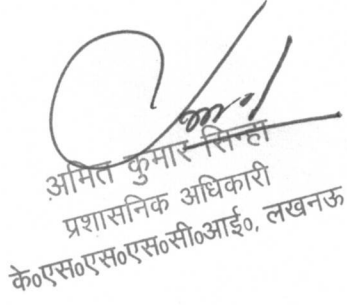 अमित कुमार सिन्हा
प्रशासनिक अधिकारी
के०एस०एस०एस०सी०आई०, लखनऊ